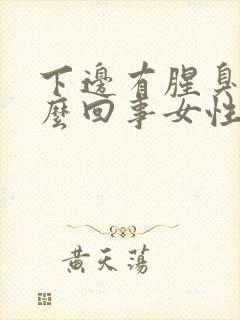 下邊有腥臭
麼回事女性
黃天蕩